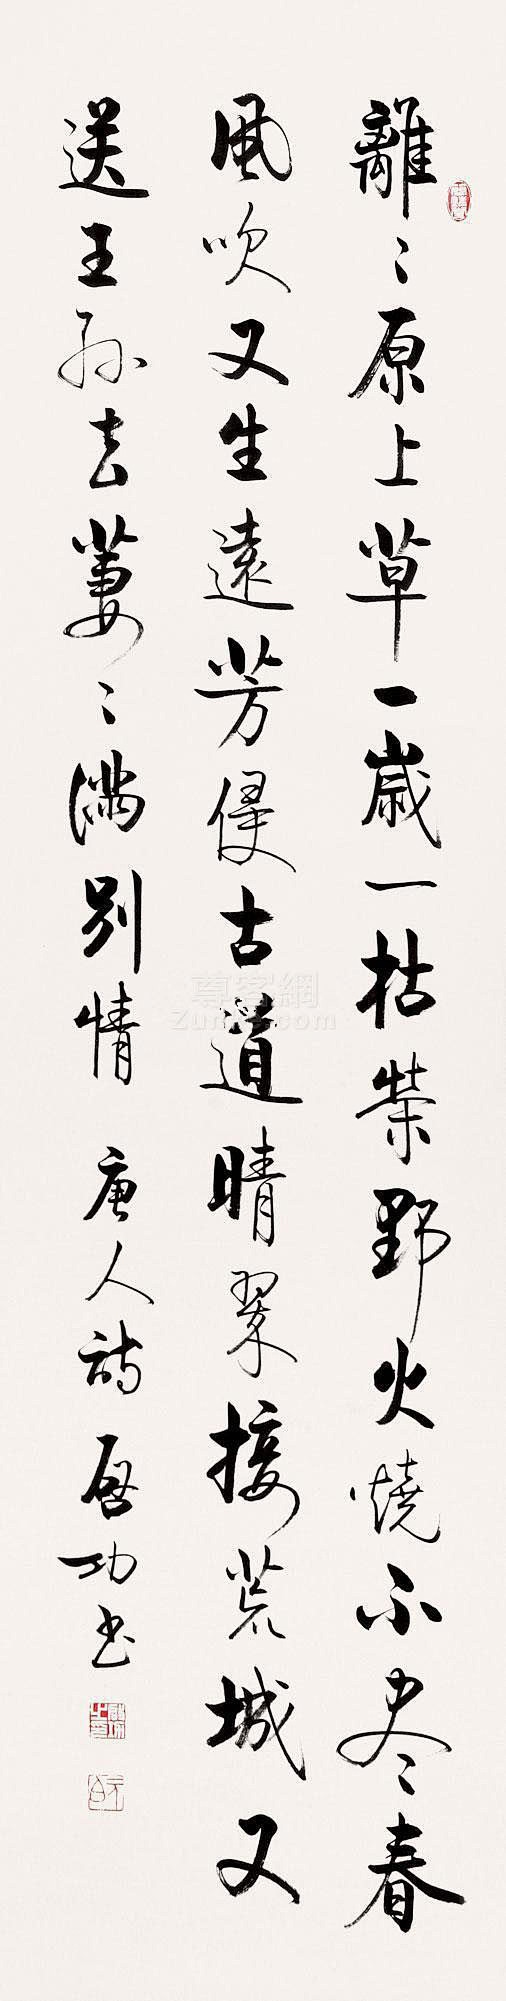 離〻原上草一歲一枯榮野火燒不尽春
風吹又生遠芳侵古道晴翠接荒城又
送王孫去萋〻滿別情 唐人詩 啟功書
尊客網